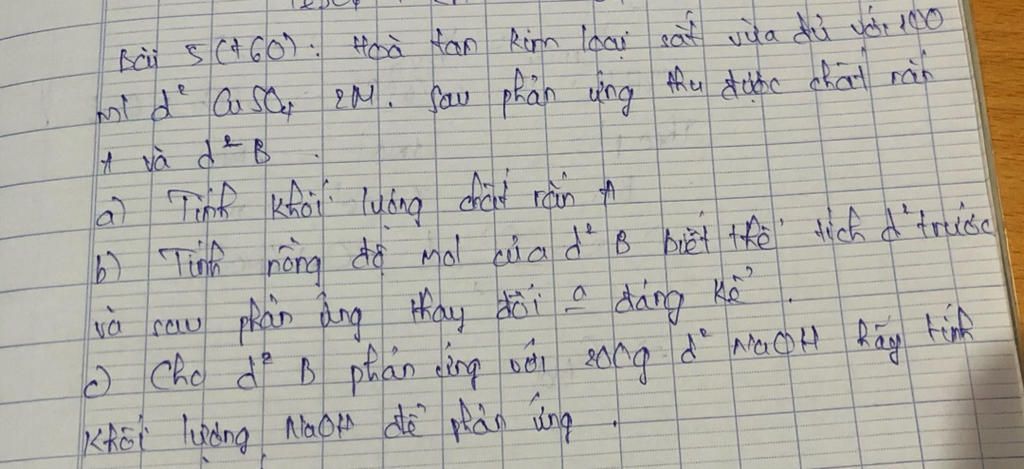 Bài 5 (t60): Hoà tan kim loại sắt vừa đủ với 100
ml d² CuSO₄ 2M. Sau phản ứng thu được chất rắn
A và d² B.
a) Tính khối lượng chất rắn A
b) Tính nồng độ mol của d² B biết thể tích d² trước
và sau phản ứng thay đổi 0 đáng kể.
c) Cho d² B phản ứng với 200g d² NaOH hãy tính
khối lượng NaOH để phản ứng.